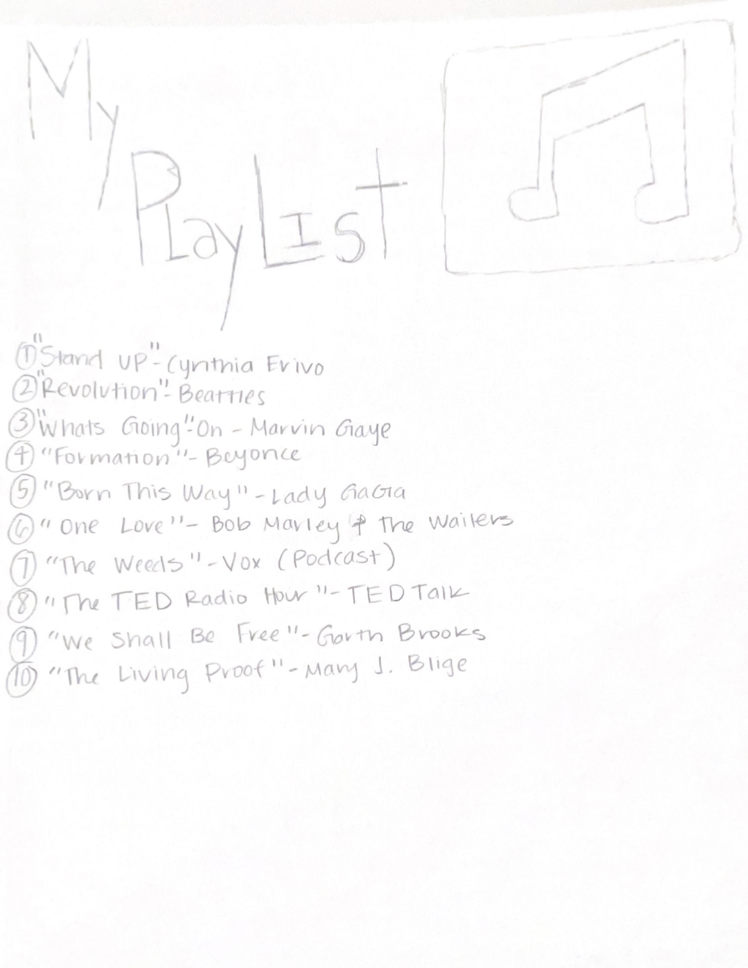 My
PlayList
① "Stand UP" - Cynthia Erivo
② "Revolution" - Beattles
③ "Whats Going" On - Marvin Gaye
④ "Formation" - Beyonce
⑤ "Born This Way" - Lady GaGa
⑥ "One Love" - Bob Marley & The Wailers
⑦ "The Weeds" - Vox (Podcast)
⑧ "The TED Radio Hour" - TED Talk
⑨ "We Shall Be Free" - Garth Brooks
⑩ "The Living Proof" - Mary J. Blige